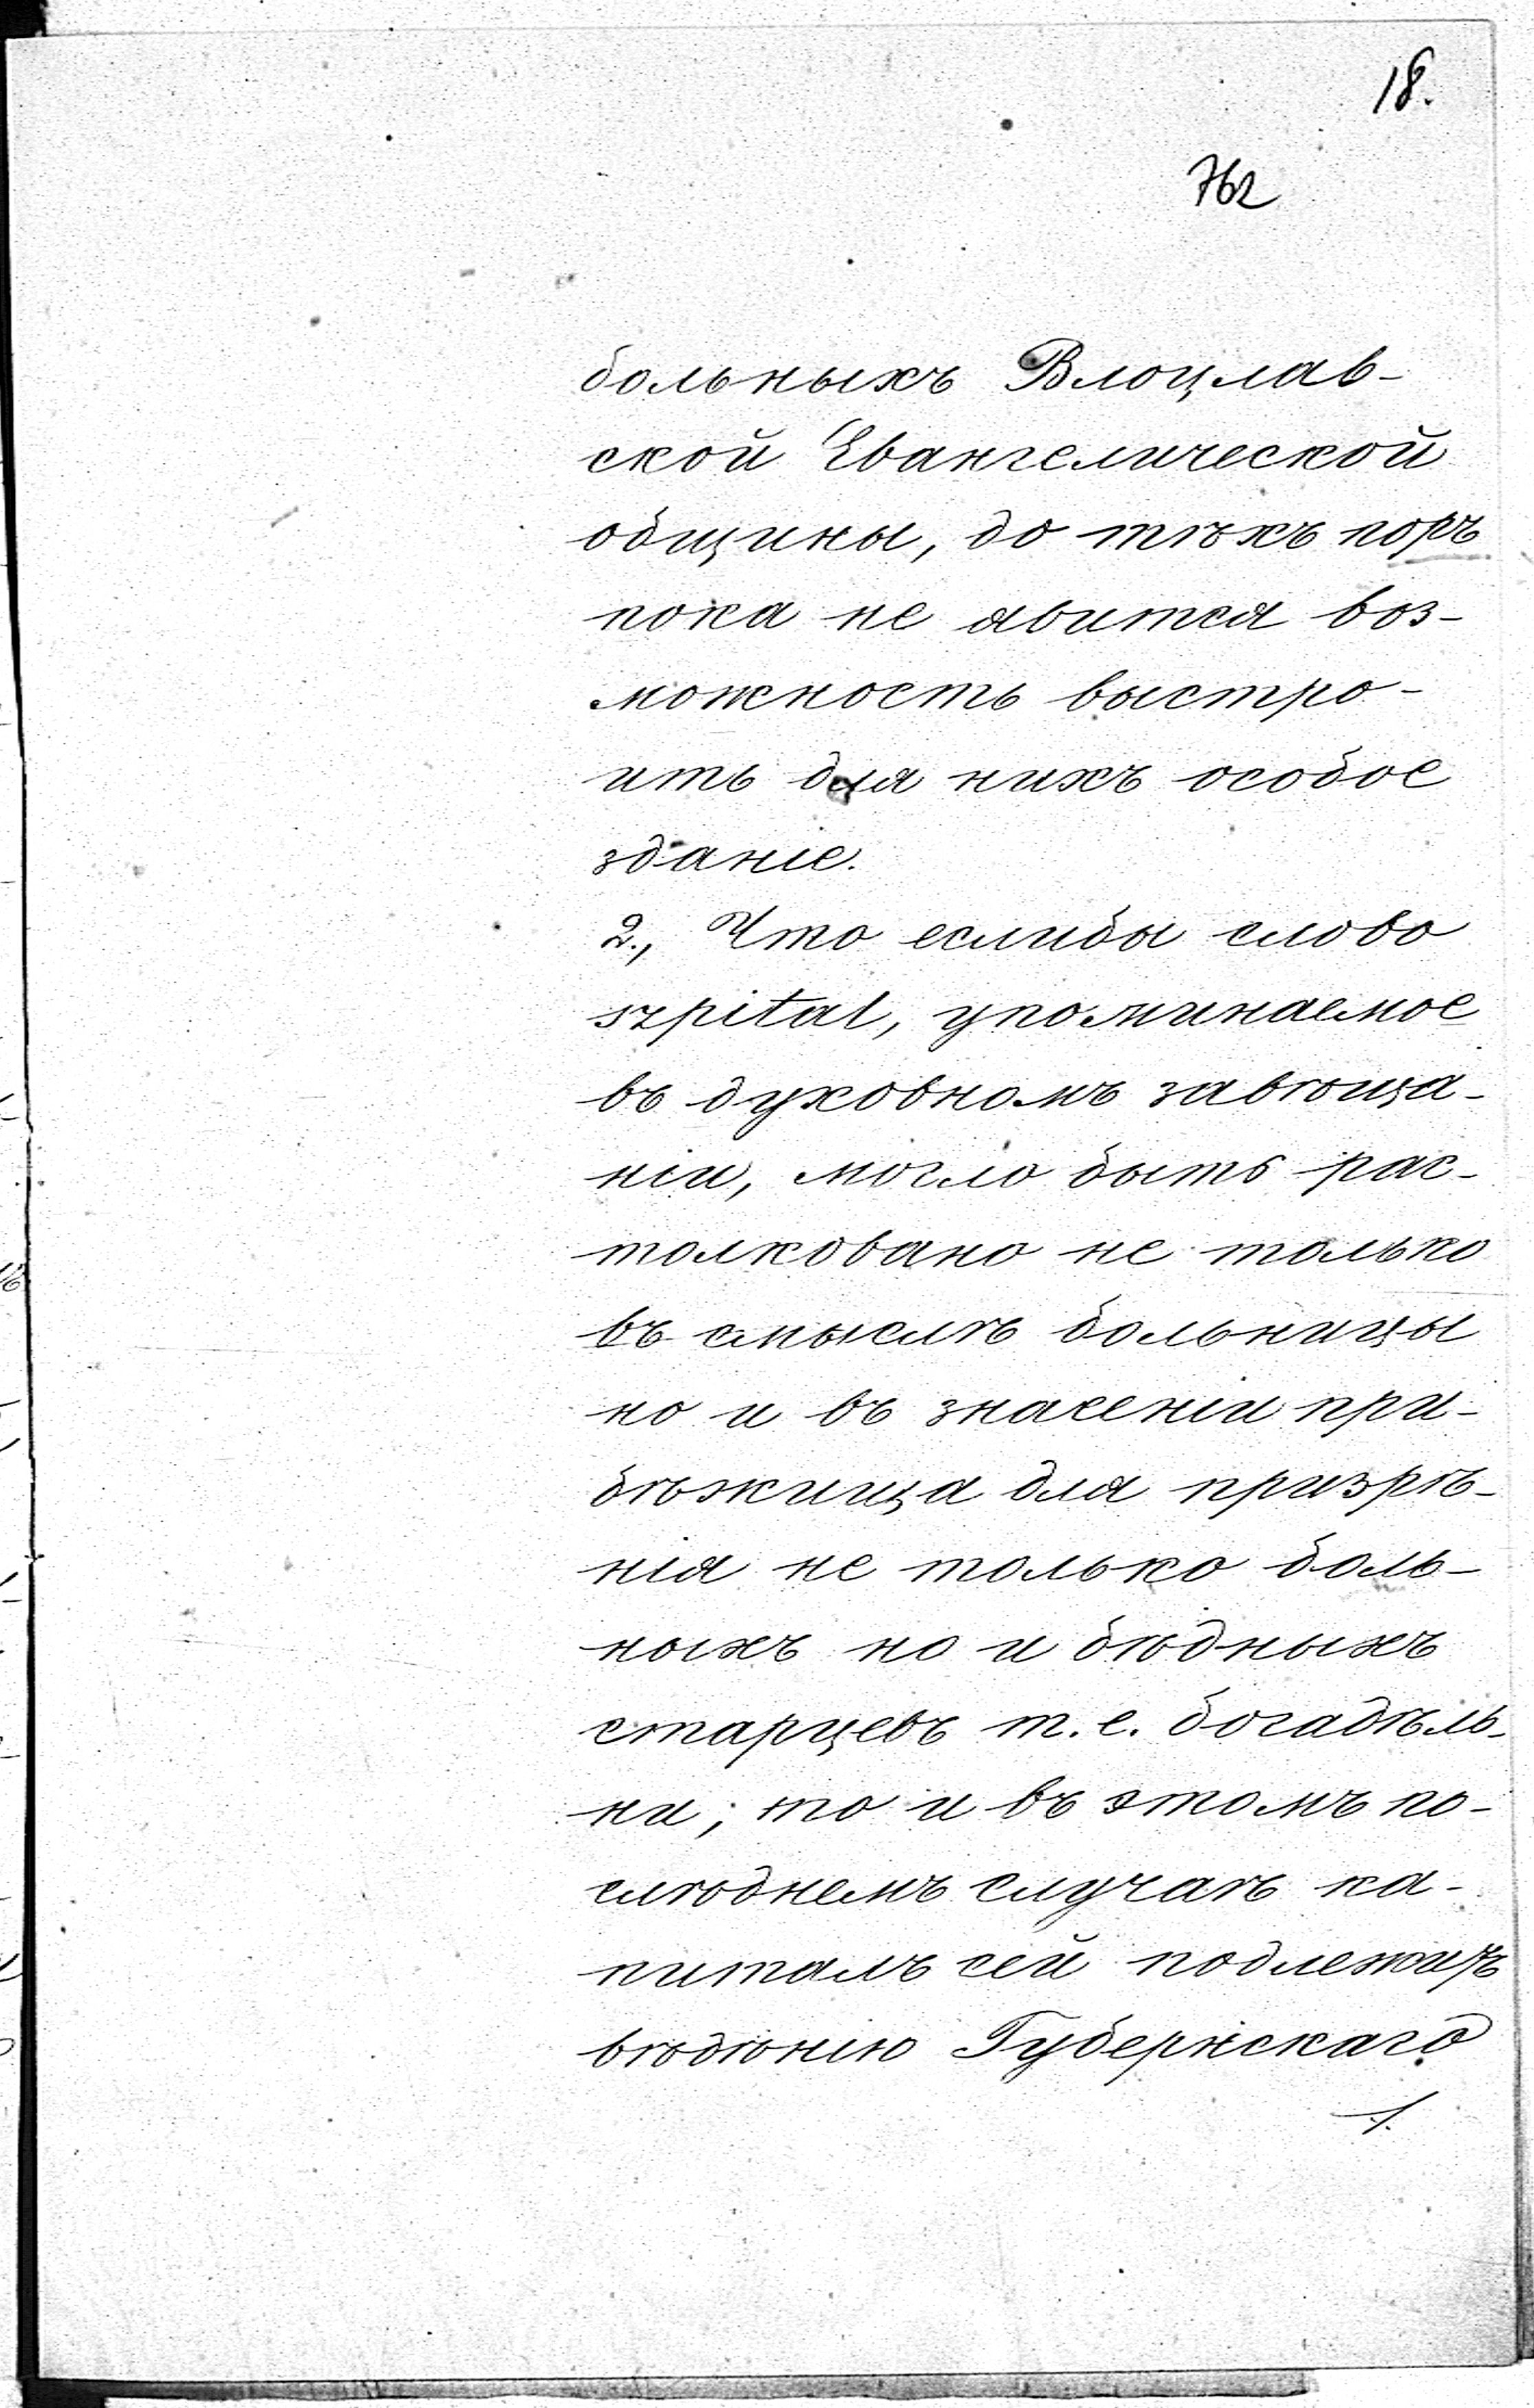 18.
762
больныхъ Влоцлав-
ской Евангелической
общины, до тѣхъ поръ
пока не явится воз-
можность выстро-
ить для нихъ особое
зданіе.
2., Что еслибы слово
szpital, упоминаемое
въ духовномъ завѣща-
ніи, могло быть рас-
толковано не только
въ смыслѣ больницы
но и въ значеніи при-
бѣжища для призрѣ-
нія не только боль-
ныхъ но и бѣдныхъ
старцевъ т.е. богадѣль-
ни; то и въ этомъ по-
слѣднемъ случаѣ ка-
питалъ сей подлежитъ
вѣдѣнію Губернскаго